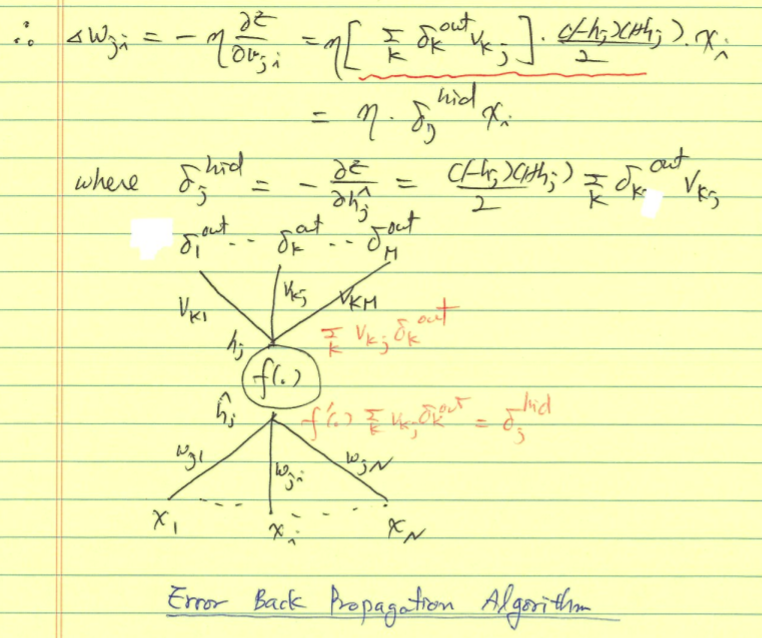 ∴ Δw_ji = − η ∂E/∂w_ji = η [ Σ_k δ_k^out v_kj ] · (1−h_j)(1+h_j)/2 · x_i
= η · δ_j^hid x_i
where δ_j^hid = − ∂E/∂ĥ_j = (1−h_j)(1+h_j)/2 Σ_k δ_k^out v_kj
δ_1^out -- δ_k^out -- δ_M^out
v_k1 v_kj v_kM
h_j Σ_k v_kj δ_k^out
f(.)
ĥ_j f'(.) Σ_k v_kj δ_k^out = δ_j^hid
w_j1 w_ji w_jN
x_1 x_i x_N
Error Back Propagation Algorithm